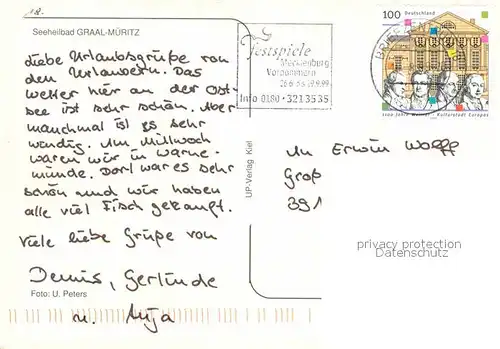 18.
Seeheilbad GRAAL-MÜRITZ
Liebe Urlaubsgrüße von
den Urlaubern. Das
Wetter hier an der Ost-
see ist sehr schön. Aber
manchmal ist es sehr
windig. Am Mittwoch
waren wir in Warne-
münde. Dort war es sehr
schön und wir haben
alle viel Fisch gekauft.
Viele liebe Grüße von
Dennis, Gerlinde
u. Anja
Foto: U. Peters
UP-Verlag Kiel
Festspiele
Mecklenburg
Vorpommern
Info 0180 - 3213535
100 Deutschland
BRIEF
1100 Jahre Weimar Kulturstadt Europas
An Erwin Wolff
Groß
391
privacy protection
Datenschutz